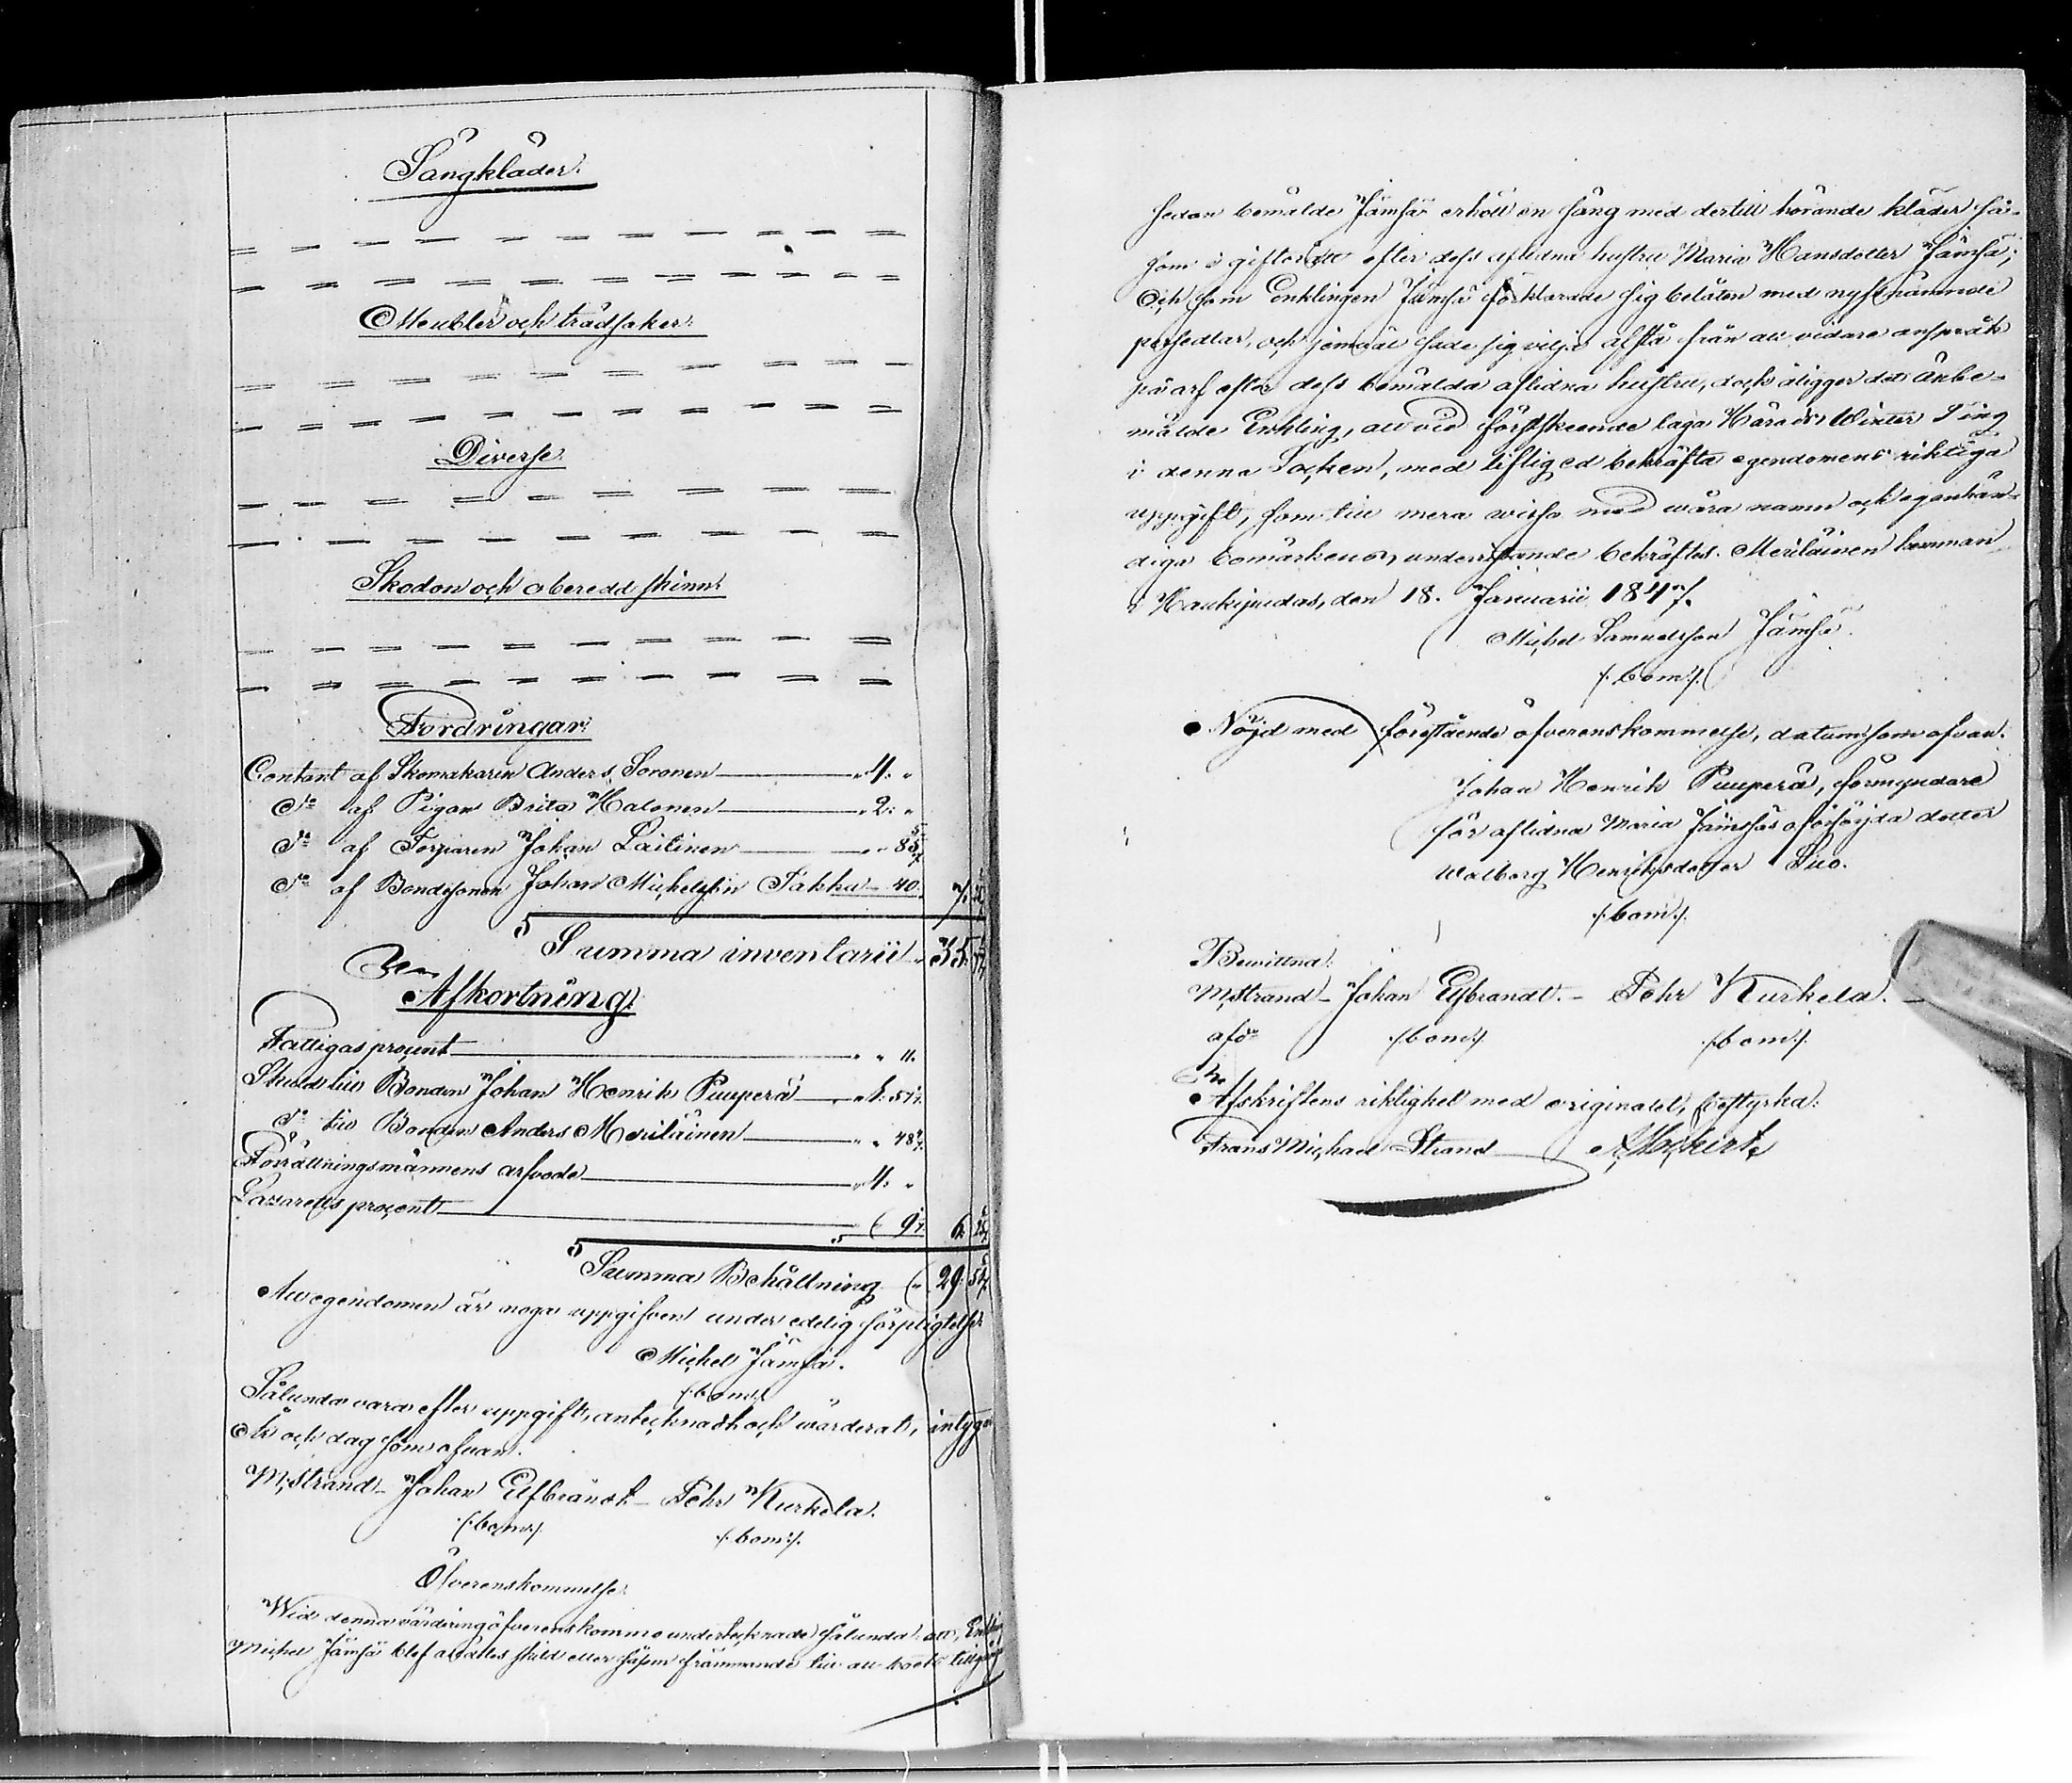 Sängkläder.
Meubler och trädsaker.
Diverse
Skodon och oberedd skinn.
Fordringar.
Contant af Skomakaren Anders Soronen 4.
D:o af Pigan Brita Halonen 2.
D:o af Torparen Johan Laitinen 85 5/7
D:o af Bondesonen Johan Michelsson Takku 40. 7.
Summa inventarii 35.
Afkortning.
Fattigas procent 11.
Skuld till Bonden Johan Henrik Puuperä 1. 57 1/7.
D:o till Bonden Anders Meriläinen 48 4/7.
Förrättningsmännens arfvode 4.
Lazaretts procent 9 1/7. 6.
Summa Behållning 29.
Att egendomen är noga uppgifven under edelig förpligtelse.
Michel Jämsä.
/:bom:/
Sålunda vara efter uppgift antecknadt och värderat, intyga
År och dag som ofvan.
M. Strand – Johan Elfbrandt – Pehr Kurkela.
/:bom:/ /:bom:/
Öfverenskommelse.
Wid denna värdering öfverenskommo undertecknade sålunda: att, Enkling
Michel Jämsä blef alldeles skild eller såsom främmande till all boets
sedan bemälde Jämsä erhöll en säng med dertill hörande kläder så-
som i giftorätt efter dess aflidna hustru Maria Hansdotter Jämsä;
Och som Enklingen Jämsä förklarade sig belåten med nyssnämnde
persedlar, och jemväl sade sig vilja afstå från all vidare anspråk
på arf efter dess bemälda aflidna hustru, dock åligger det ånbe-
mälde Enkling, att vid förstskeende laga Härads Winter Ting
i denna Socken, med liflig ed bekräfta egendomens riktiga
uppgift, som till mera visso med våra namn och egenhän-
diga bomärkens, underristande bekräftes. Meriläinen hemman
i Haukipudas, den 18. Januarii 1847.
Michel Samuelsson Jämsä.
/:bom:/
Nöjd med förestående öfverenskommelse, datum som ofvan.
Johan Henrik Puuperä, förmyndare
för aflidna Maria Jämsäs oförsörjda dotter
Walborg Henriksdotter Suo.
/:bom:/
Bewittna:
M. Strand – Johan Elfbrandt. – Pehr Kurkela. –
/:bom:/ /:bom:/
Afskriftens riktighet med originalet, bestyrka:
Frans Michael Strand